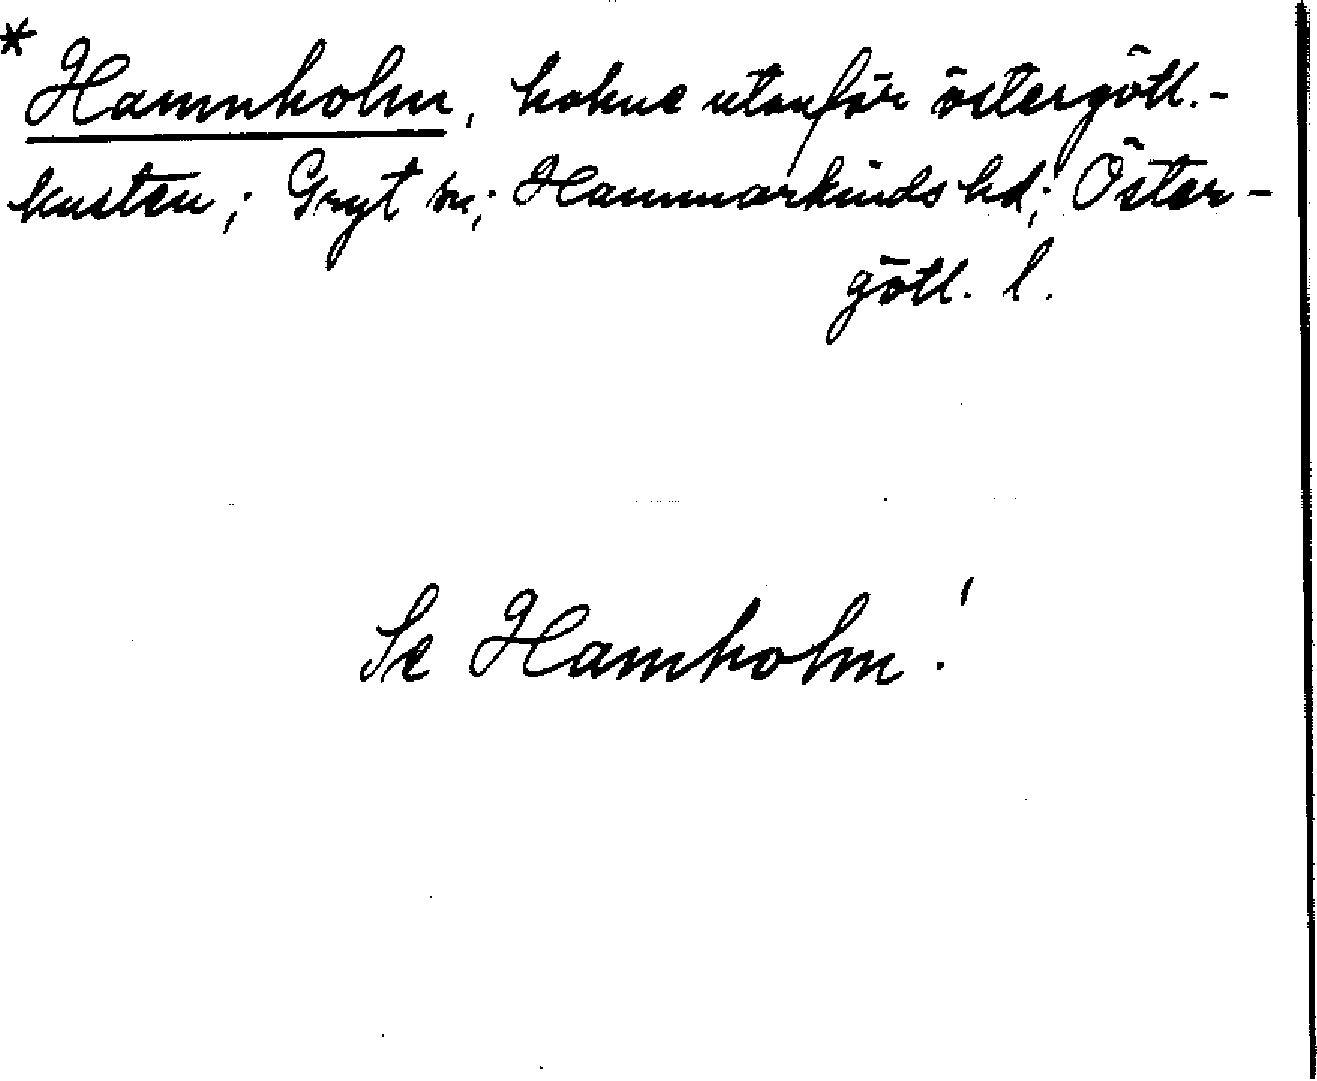 * Hamnholm, holme utanför östergötl.-
kusten; Gryt sn; Hammarkinds hd; Öster-
götl. l.
Se Hamholm!